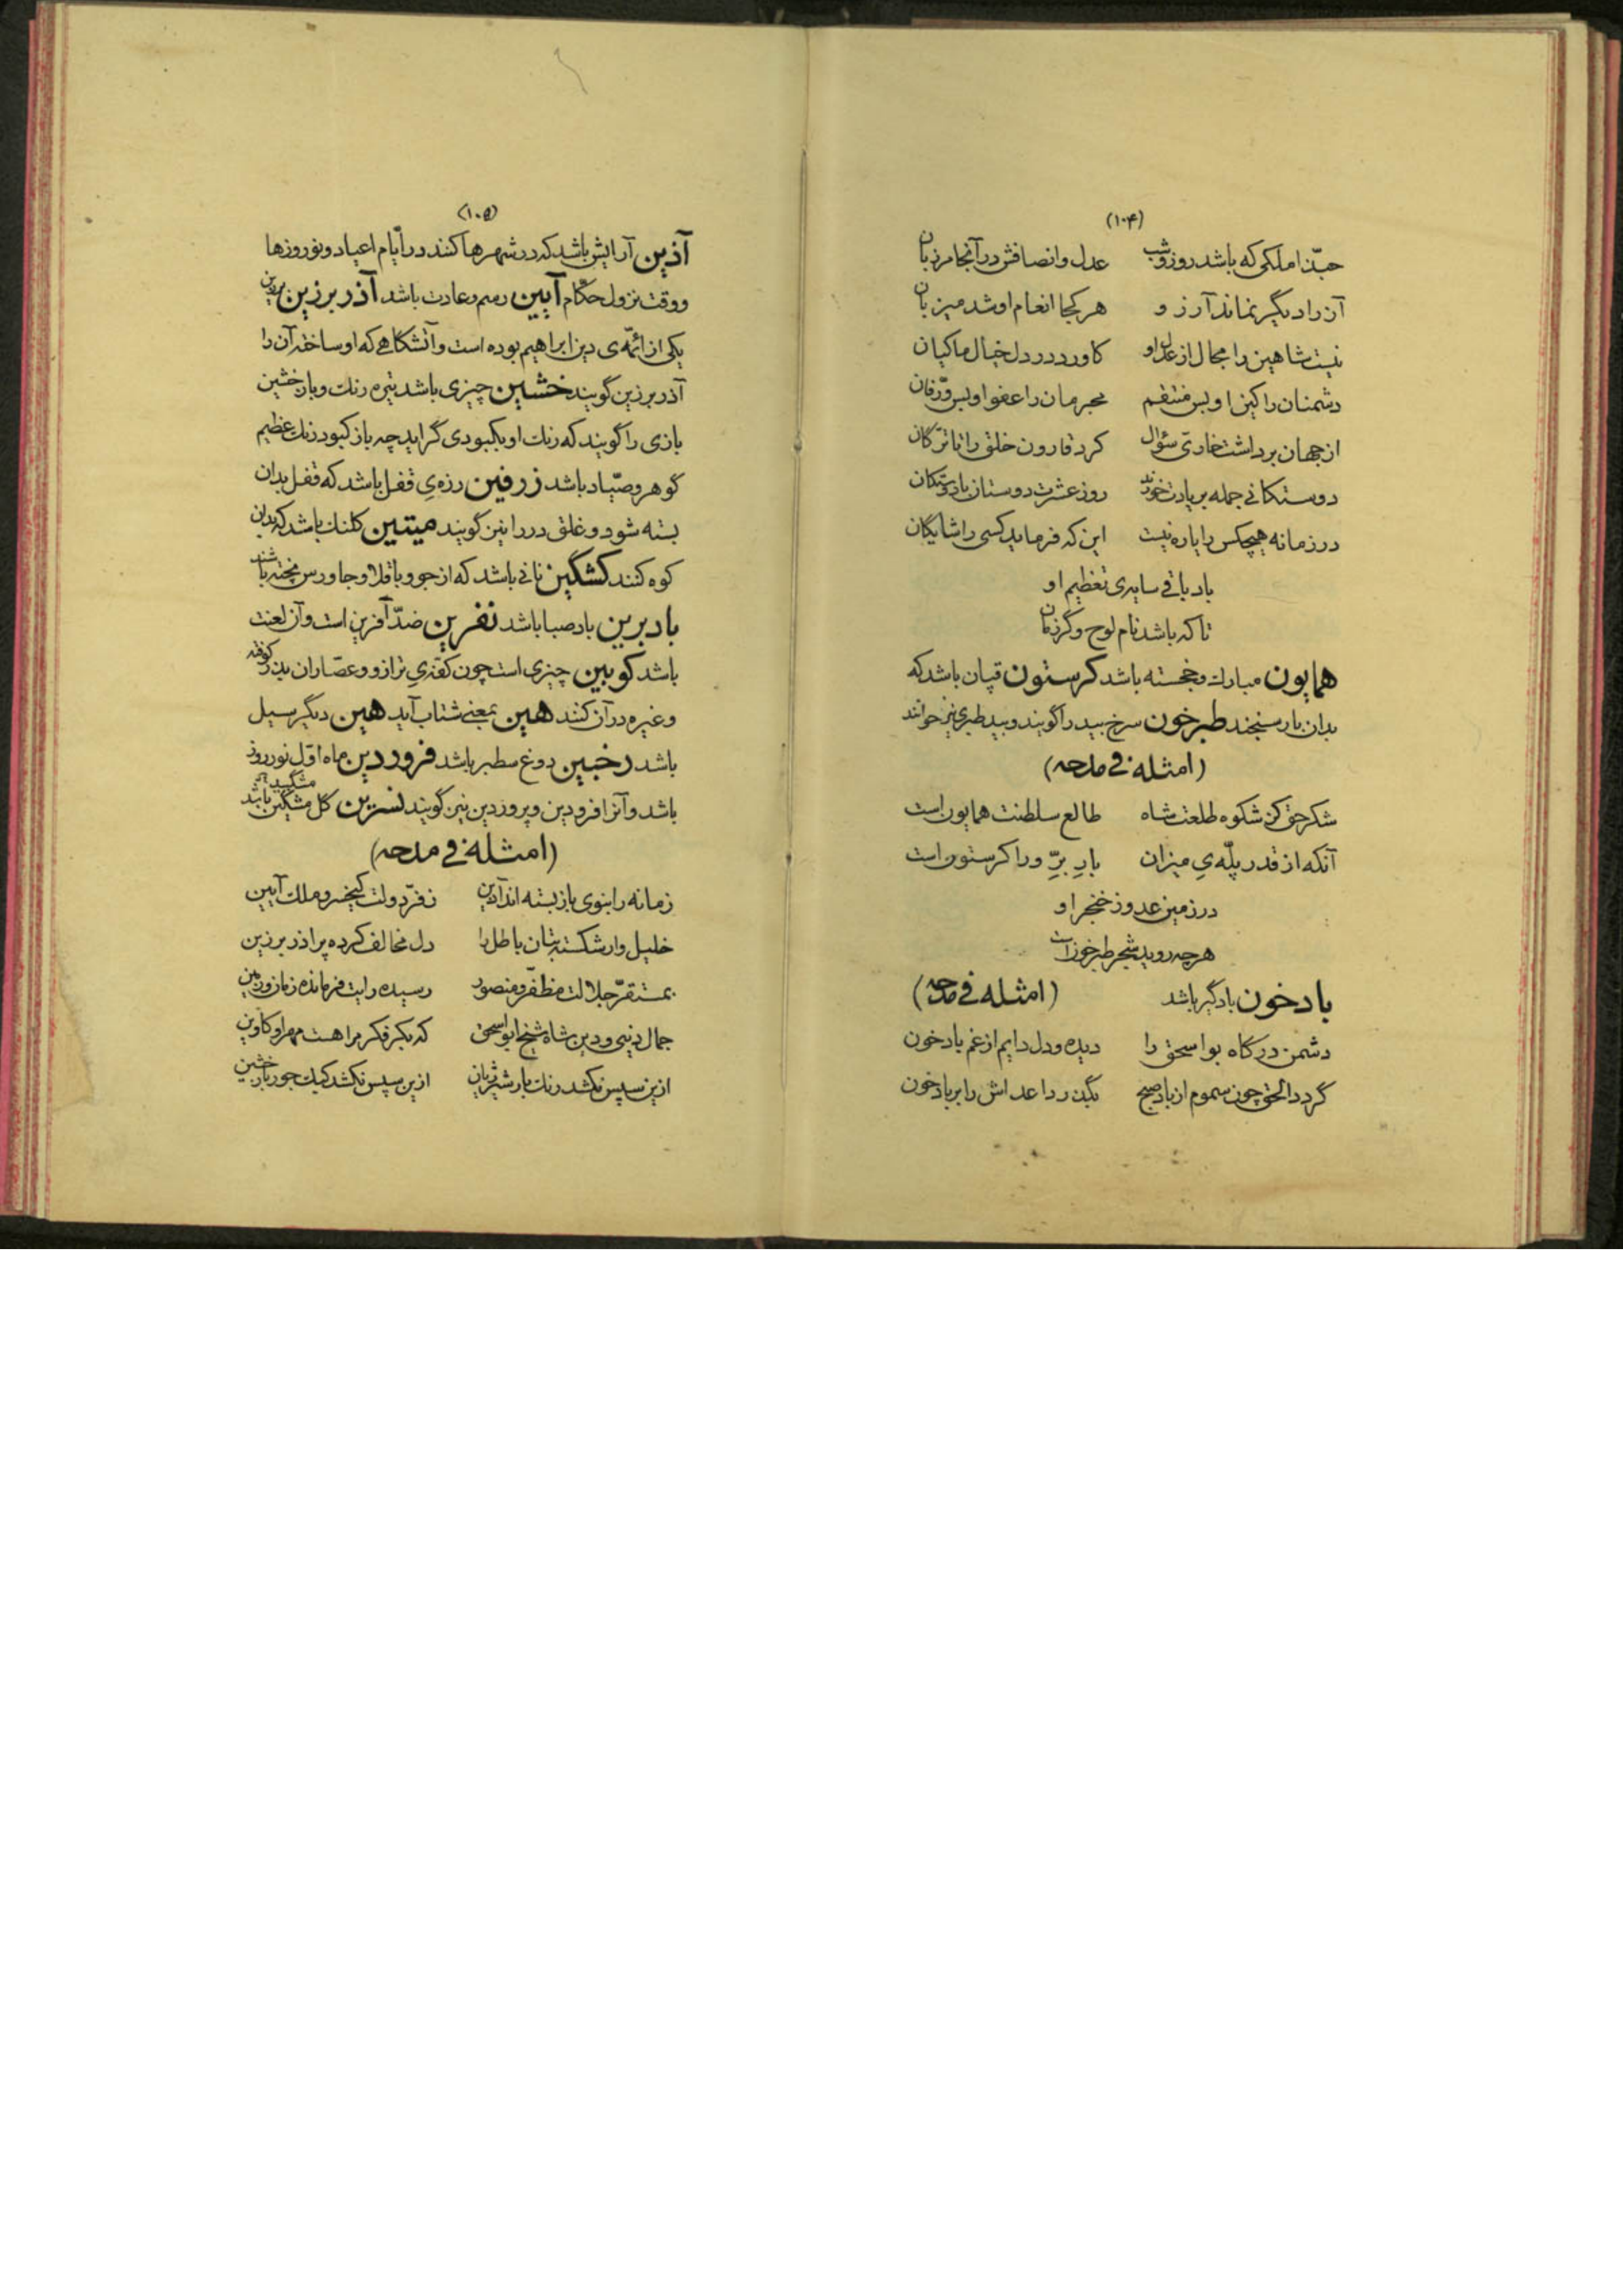 (۱۰۴)
حبّذا ملکی که باشد روز و شب عدل و انصافش در آنجا مرزبان
آز را دیگر نماند آرزو هر کجا انعام او شد میزبان
نیست شاهین را مجال از عدل او کاورد در دل خیال ماکیان
دشمنان را کین او بس منتقم مجرمان را عفو او بس ورّفان
از جهان برداشت خاری سؤال کرد قارون خلق را تا ترگان
دوستکانی جمله بر یادت خورند روز عشرت دوستان با دوستکان
در زمانه هیچکس را یاره نیست این که فرماید کسی را شایگان
باد باقی سایه‌ی تعظیم او
تا که باشد نام لوح و گرزمان
همایون مبارك و خجسته باشد کرستون قپان باشد که
بدان بار سنجند طبرخون سرخ بید را گویند و بید طبری نیز خوانند
(امثله فی مدحه)
شکر حق کز شکوه طلعت شاه طالع سلطنت همایون است
آنکه از قدر پلّه‌یِ میزان بارِ برِّ ورا کرستون است
در زمین عدو ز خنجر او
هر چه روید شجر طبرخون است
بادخون بادگیر باشد (امثله فی مدحه)
دشمن درگاه بواسحق را دیده و دل دایم از غم بادخون
گردد الحق چون سموم از باد صبح بگذرد اعداش را بر بادخون
(۱۰۵)
آذین آرایش باشد که در شهرها کنند در ایّام اعیاد و نوروزها
و وقت نزول حکّام آیین رسم و عادت باشد آذر برزین
یکی از ائمّه‌ی دین ابراهیم بوده است و آتشکاهی که او ساخته آن را
آذر برزین گویند خشین چیزی باشد تیره رنك و باز خشین
بازی را گویند که رنك او بکبودی گراید چه باز کبود رنك عظیم
گوهر و صیّاد باشد زرفین رزه‌یِ قفل باشد که قفل بدان
بسته شود و غلق در را نیز گویند میتین کلنك باشد که بدان
کوه کنند کشگین نانی باشد که از جو و باقلا و جاورس پخته باشند
باد برین باد صبا باشد نفرین ضدّ آفرین است و آن لعنت
باشد کوبین چیزی است چون کفه‌یِ ترازو و عصّاران بذر کوفته
و غیره در آن کنند هین بمعنی شتاب آید هین دیگر سیل
باشد رخبین دوغ سطبر باشد فروردین ماه اوّل نوروز
باشد و آنرا فرودین و پروردین نیز گویند نسرین گل مشگین باشد
(امثله فی مدحه)
زمانه را بنوی باز بسته اند آذین ز فرّ دولت کیخسرو ملك آیین
خلیل وار شکسته بتان باطل را دل مخالف کرده پر آذر برزین
بمستقرّ جلالت مظفّر و منصور رسیده رایت فرمانده زمان و زمین
جمال دنیی و دین شاه شیخ ابو اسحق که بکر فکر مرا هست مهر او کاوین
ازین سپس نکشد رنك بار شیر ژیان ازین سپس نکشد کبك جور باز خشین